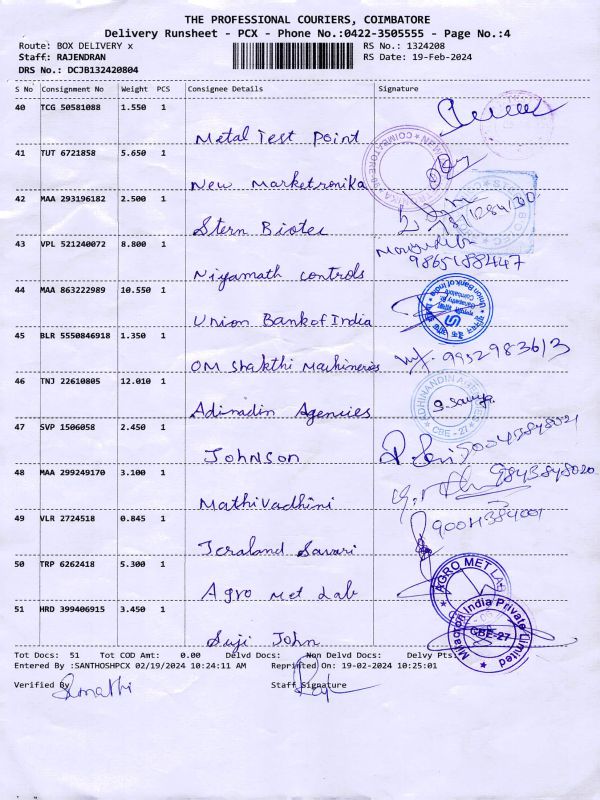 THE PROFESSIONAL COURIERS, COIMBATORE
Delivery Runsheet - PCX - Phone No.:0422-3505555 - Page No.:4
Route: BOX DELIVERY x RS No.: 1324208
Staff: RAJENDRAN RS Date: 19-Feb-2024
DRS No.: DCJB132420804
S No Consignment No Weight PCS Consignee Details Signature
40 TCG 50581088 1.550 1
Metal Test Point
41 TUT 6721858 5.650 1
New Marketronika
42 MAA 293196182 2.500 1
Stern Biotec
43 VPL 521240072 8.800 1
Niyamath controls 9865188447
44 MAA 863222989 10.550 1
Union Bank of India
Union Bank of India
45 BLR 5550846918 1.350 1
OM Shakthi Machineries 9952983613
46 TNJ 22610805 12.010 1
Adinadin Agencies
CBE - 27
47 SVP 1506058 2.450 1
Johnson
48 MAA 299249170 3.100 1 9843848020
Mathivadhini
49 VLR 2724518 0.845 1
Jeraland Savari
50 TRP 6262418 5.300 1
Agro Met Lab
AGRO MET LAB
51 HRD 399406915 3.450 1
Suji John
India Private Limited
CBE-27
Tot Docs: 51 Tot COD Amt: 0.00 Delvd Docs: Non Delvd Docs: Delvy Pts:
Entered By :SANTHOSHPCX 02/19/2024 10:24:11 AM Reprinted On: 19-02-2024 10:25:01
Verified By Staff Signature